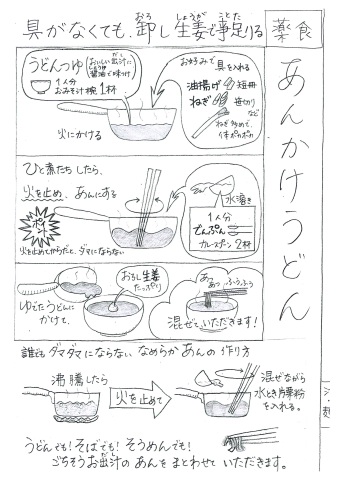 具がなくても、卸し生姜で事足りる
おろ しょうが ことた
薬食
あんかけうどん
うどんつゆ
おいしい出汁に
醤油で味つけ
1人分
おみそ汁椀1杯
火にかける
お好みで具を入れる
油揚げ 短冊
ねぎ 笹切り
など
ねぎ炒めで、
体ポカポカ
ひと煮たちしたら、
火を止め、あんにする
ポイント
火を止めてからだと、ダマにならない
水溶き
1人分
でんぷん
カレースプーン2杯
ゆでたうどんに
かけて、
おろし生姜
たっぷり
あぁ
あっ ふぅふぅ
混ぜていただきます!
誰でもダマダマにならない なめらかあんの作り方
沸騰したら
火を止めて
混ぜながら
水とき片栗粉
を入れる。
うどんでも!そばでも!そうめんでも!
ごちそうお出汁のあんをまとわせていただきます。